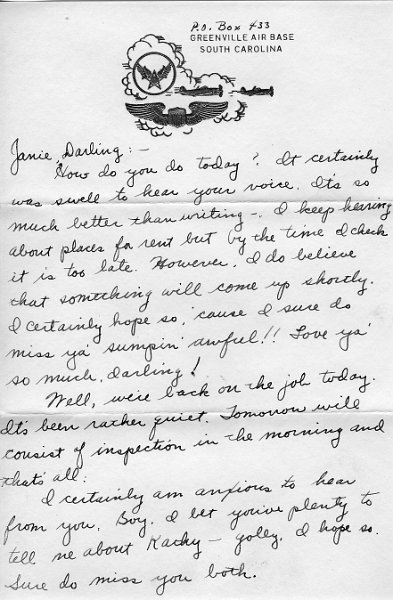 P.O. Box 433
GREENVILLE AIR BASE
SOUTH CAROLINA
Janie, Darling: -
How do you do today? It certainly
was swell to hear your voice. It's so
much better than writing -. I keep hearing
about places for rent but by the time I check
it is too late. However, I do believe
that something will come up shortly.
I certainly hope so, 'cause I sure do
miss ya' sumpin' awful!! Love ya'
so much, darling!
Well, we're back on the job today.
It's been rather quiet. Tomorrow will
consist of inspection in the morning and
that's all.
I certainly am anxious to hear
from you. Boy, I bet you've plenty to
tell me about Kathy - golly, I hope so.
Sure do miss you both.